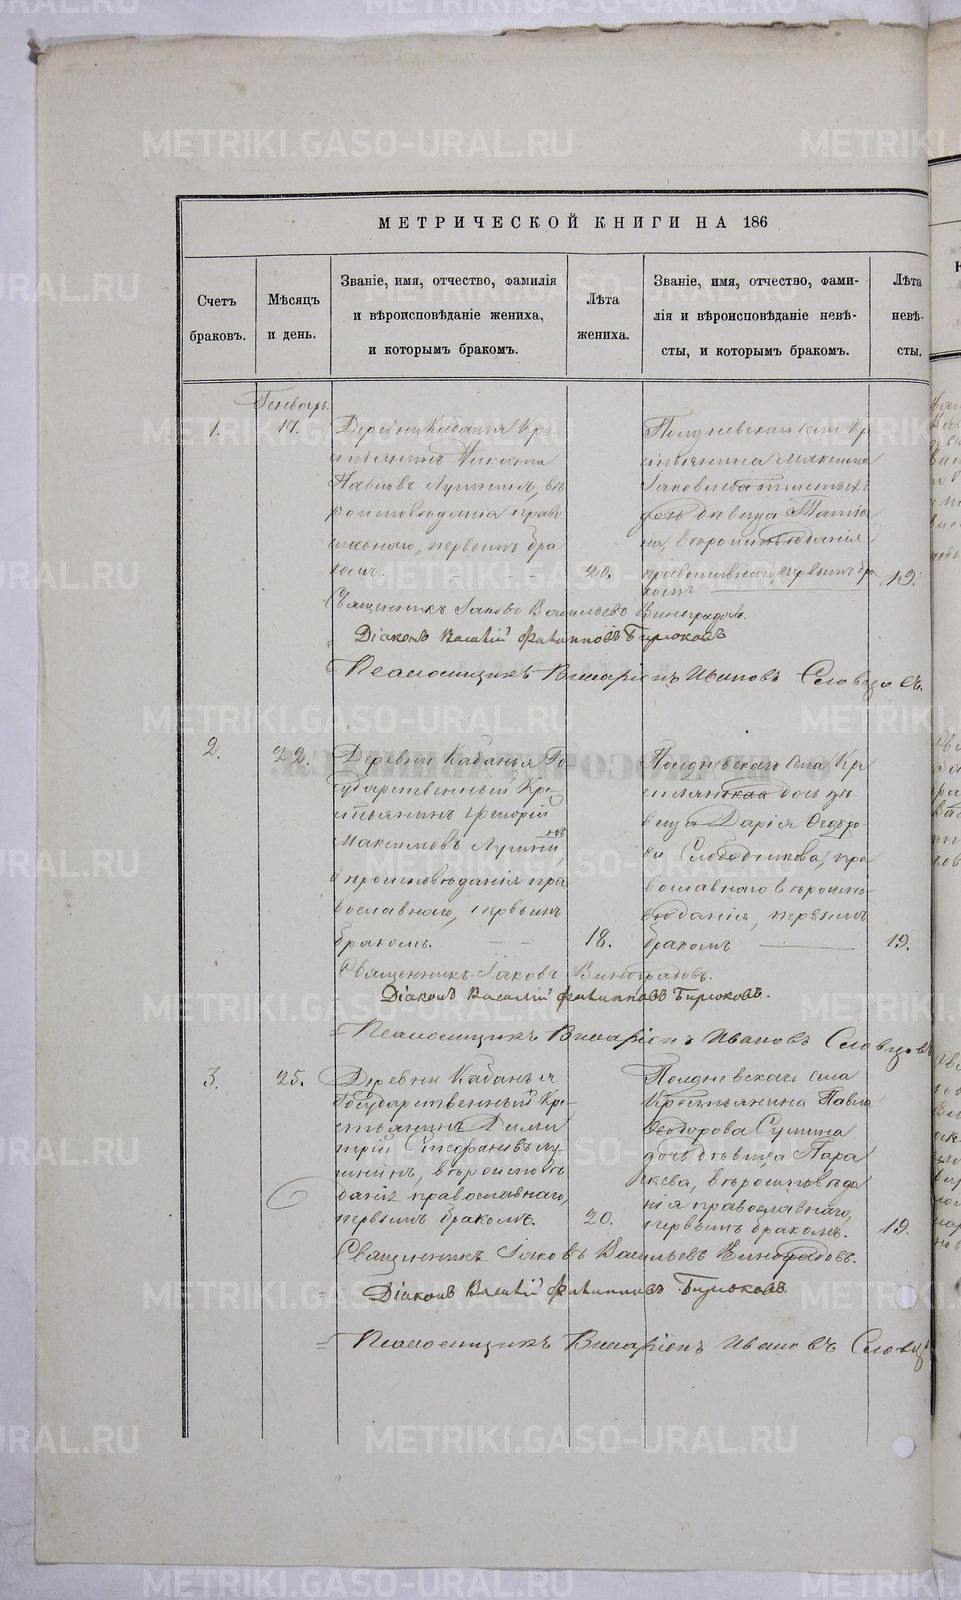 МЕТРИЧЕСКОЙ КНИГИ НА 186
Счетъ браковъ.
Мѣсяцъ и день.
Званіе, имя, отчество, фамилія
и вѣроисповѣданіе жениха,
и которымъ бракомъ.
Лѣта жениха.
Званіе, имя, отчество, фами-
лія и вѣроисповѣданіе невѣ-
сты, и которымъ бракомъ.
Лѣта невѣ-
сты.
Генварь.
1.
17.
Деревни Кабанья Кре
стьянинъ Никита
Павловъ Лушинъ, вѣ
роисповѣданія право
славнаго, первымъ бра
комъ.
20.
Полдневскаго села Кр
естьянина Максима
Іаковлева
дочь дѣвица Татіа
на, вѣроисповѣданія
православнаго, первымъ бра
комъ
19.
Священникъ Іаковъ Васильевъ Виноградовъ.
Діаконъ Василій Филипповъ Бирюковъ
Псаломщикъ Виссаріонъ Ивановъ Словцовъ.
2.
22.
Деревни Кабанья Го
сударственный Кре
стьянинъ Григорій
Максимовъ Лушни
ковъ,
вѣроисповѣданія пра
вославнаго, первымъ
бракомъ.
18.
Полдневскаго села Кре
стьянская дочь дѣ
вица Дарія Ѳеодоро
ва Слободчикова, пра
вославнаго вѣроиспо
вѣданія, первымъ
бракомъ
19.
Священникъ Іаковъ Виноградовъ.
Діаконъ Василій Филипповъ Бирюковъ.
Псаломщикъ Виссаріонъ Ивановъ Словцовъ
3.
25.
Деревни Кабанья
Государственный Кре
стьянинъ Дими
трій Стефановъ Лу
шинъ, вѣроисповѣ
данія православнаго,
первымъ бракомъ.
20.
Полдневскаго села
Крестьянина Павла
Ѳеодорова Сушина
дочь дѣвица Пара
скева, вѣроисповѣда
нія православнаго,
первымъ бракомъ.
19.
Священникъ Іаковъ Васильевъ Виноградовъ.
Діаконъ Василій Филипповъ Бирюковъ.
Псаломщикъ Виссаріонъ Ивановъ Словц
METRIKI.GASO-URAL.RU